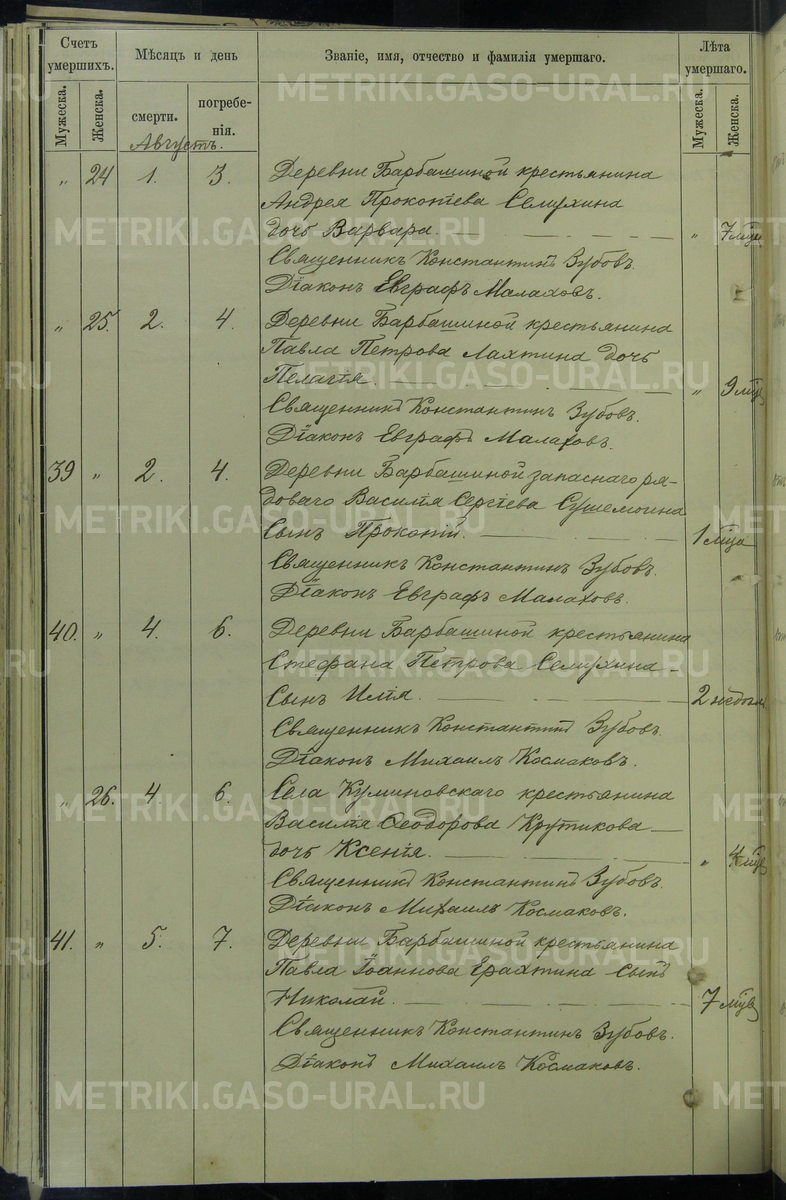 Счетъ умершихъ.
Мѣсяцъ и день
Званіе, имя, отчество и фамилія умершаго.
Лѣта умершаго.
Мужеска.
Женска.
смерти.
погребе-
нія.
Мужеска.
Женска.
METRIKI.GASO-URAL.RU
Августъ.
„ 24 1. 3. Деревни Барбашиной крестьянина
Андрея Прокопіева Селухина
дочь Варвара. „ 7 мцв
METRIKI.GASO-URAL.RU
Священникъ Константинъ Зубовъ.
Діаконъ Евграфъ Малаховъ.
„ 25. 2. 4. Деревни Барбашиной крестьянина
Павла Петрова Лахтина дочь
Пелагія. „ 9 мцв
METRIKI.GASO-URAL.RU
Священникъ Константинъ Зубовъ.
Діаконъ Евграфъ Малаховъ.
39 „ 2. 4. Деревни Барбашиной запаснаго ря-
доваго Василія Сергіева
METRIKI.GASO-URAL.RU
Сынъ Прокопій. 1 мца
Священникъ Константинъ Зубовъ.
Діаконъ Евграфъ Малаховъ.
40. „ 4. 6. Деревни Барбашиной крестьянина
Стефана Петрова Селухина
METRIKI.GASO-URAL.RU
Сынъ Илія. 2 недѣль
Священникъ Константинъ Зубовъ.
Діаконъ Михаилъ Космаковъ.
„ 26. 4. 6. Села Куминовскаго крестьянина
METRIKI.GASO-URAL.RU
Василія Ѳеодорова Крутикова
дочь Ксенія. „ 4 мцв
Священникъ Константинъ Зубовъ.
Діаконъ Михаилъ Космаковъ.
41. „ 5. 7. Деревни Барбашиной крестьянина
METRIKI.GASO-URAL.RU
Павла Іоаннова Ерахтина Сынъ
Николай. 7 мцв
Священникъ Константинъ Зубовъ.
Діаконъ Михаилъ Космаковъ.
METRIKI.GASO-URAL.RU